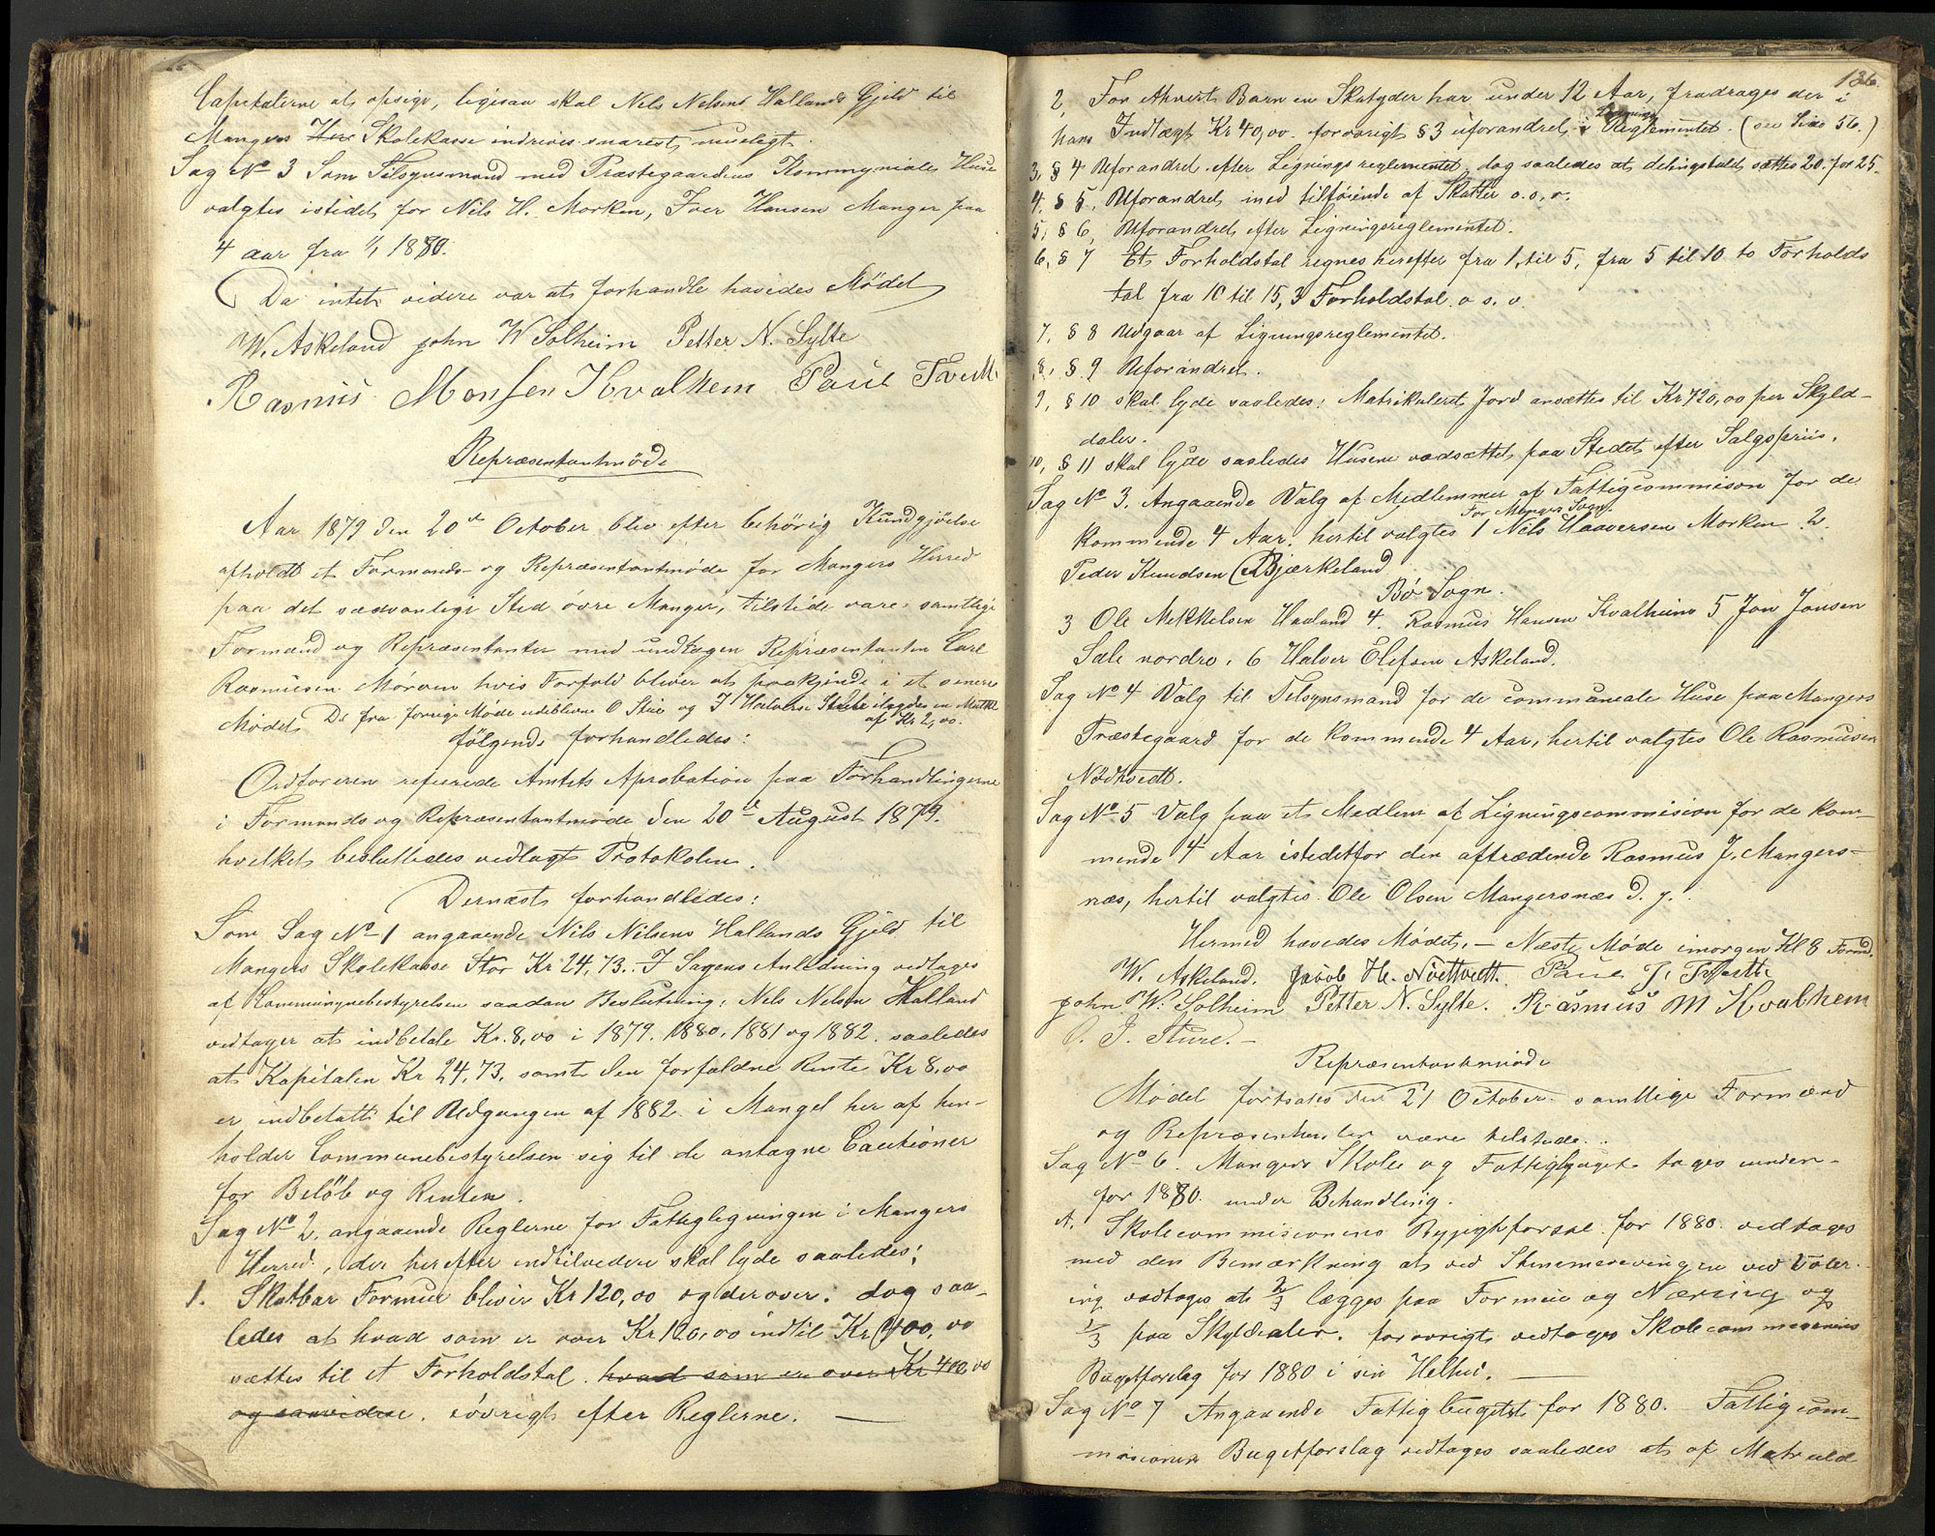 Capitalerne at opsige, ligesaa skal Nils Nelsens Hallands Gjeld til
Mangers Skolekasse indrives snarest mueligt.
Sag No 3 Som Tilsynsmand med Præstegaardens Kommuniale Huse
valgtes istedet for Nils H. Morken, Iver Hansen Manger paa
4 aar fra 1/1 1880.
Da intet videre var at forhandle hævedes Mödet
W. Askeland john W Solheim Petter N. Sylte
Rasmus Monsen Kvalhem Paul Tveit
Repræsentantmöde
Aar 1879 den 20de October blev efter behörig Kundgjörelse
afholdt et Formands- og Repræsentantmöde for Mangers Herred
paa det sædvanlige Sted övre Manger, tilstede vare samtlige
Formænd og Repræsentanter med undtagen Repræsentanten Carl
Rasmusen Mörven hvis Forfald bliver at paakjende i et senere
Mödet De fra forrige Möde udeblevne O Stur og I Halvorsen ilagdes en Mulkt
af Kr 2,00.
fölgende forhandledes:
Ordföreren refererede Amtets Aprobation paa Forhandlingerne
i Formands og Repræsentantmöde den 20de August 1879.
hvilket besluttedes vedlagt Protokolen.
Dernæst forhandledes:
Som Sag No 1 angaaende Nils Nilsens Hallands Gjeld til
Mangers Skolekasse Stor Kr 24,73. I Sagens Anledning vedtages
af Kommunebestyrelsen saadan Beslutning: Nels Nelsen Halland
vedtager at indbetale Kr. 8,00 i 1879. 1880, 1881 og 1882. saaledes
at Kapitalen Kr 24,73, samt den forfaldne Rente Kr 8,00
er indbetalt til Udgangen af 1882. i Mangel her af hen-
holder Communebestyrelsen sig til de antagne Cautioner
for Belöb og Renten.
Sag No 2. angaaende Reglerne for Fattiglegningen i Mangers
Herred, der herefter indtilvedere skal lyde saaledes:
1. Skatbar Formue bliver Kr 120,00 og derover: dog saa-
ledes at hvad som er over Kr 120,00 indtil Kr 400,00
sættes til et Forholdstal. hvad som er over Kr 400,00
og saavidere. iövrigt efter Reglerne. —
136.
2, For ethvert Barn en Skatyder har under 12 Aar, fradrages der i
hans Indtægt Kr 40,00. forövrigt § 3 uforandret i Lignings
Reglementet. (see Side 56.)
3, § 4 Uforandret efter Ligningsreglementet, dog saaledes at delingstallet sættes 20 for 25.
4, § 5, Uforandret med tilföiende af Skatter o.s.v.
5, § 6, Uforandret efter Ligningsreglementet.
6, § 7 Et Forholdstal regnes herefter fra 1 til 5, fra 5 til 10 to Forholds
tal fra 10 til 15, 3 Forholdstal o s. v.
7, § 8 Udgaar af Ligningsreglementet.
8, § 9 Uforandret.
9, § 10 skal lyde saaledes: Matrikuleret Jord ansættes til Kr 720,00 per Skyld-
daler.
10, § 11 skal lyde saaledes Husene værdsættet paa Stedet efter Salgspriis.
Sag No 3. Angaaende Valg af Medlemmer af Fattigcommision for de
For Mangers Sogn.
kommende 4 Aar. hertil valgtes 1 Nils Haaversen Morken 2.
Peder Knudsen Bjærkeland
Bö Sogn.
3 Ole Mekkelsen Havland 4. Rasmus Hansen Kvalheim 5 Jon Jonsen
Sæle nordre, 6 Halvor Elefsen Askeland.
Sag No 4 Valg til Tilsynsmand for de communeale Huse paa Mangers
Præstegaard for de kommende 4 Aar, hertil valgtes Ole Rasmusen
Nödtvedt.
Sag No 5 Valg paa et Medlem af Ligningscommision for de kom-
mende 4 Aar istedetfor den aftrædende Rasmus J. Mangers-
næs, hertil valgtes Ole Olsen Mangersnæs D. y.
Hermed hævedes Mödet. — Næste Möde imorgen Kl 8 Formd.
W. Askeland. Jacob H. Nöttvedt. Paul J. Tveit
john W. Solheim Petter N. Sylte. Rasmus M Kvalhem
O. J. Sture. —
Repræsentantmöde
Mödet fortsates den 21 October. samtlige Formænd
og Repræsentanter være tilstede.
Sag No 6. Mangers Skole og Fattigbuget tages under-
for 1880. under Behandling.
A. Skolecommisionens Bygigtforsal for 1880. vedtages
med den Bemærkning at ved
ing vedtages at 2/3 lægges paa Formue og Næring og
1/3 paa Skyldaler. forövrigt vedtages Skolecommisionens
Bugetforslag for 1880 i sin Helhed. —
Sag No 7 Angaaende Fattigbugettet for 1880. Fattigcom-
misionens Bugetforslag vedtages saaledes at af